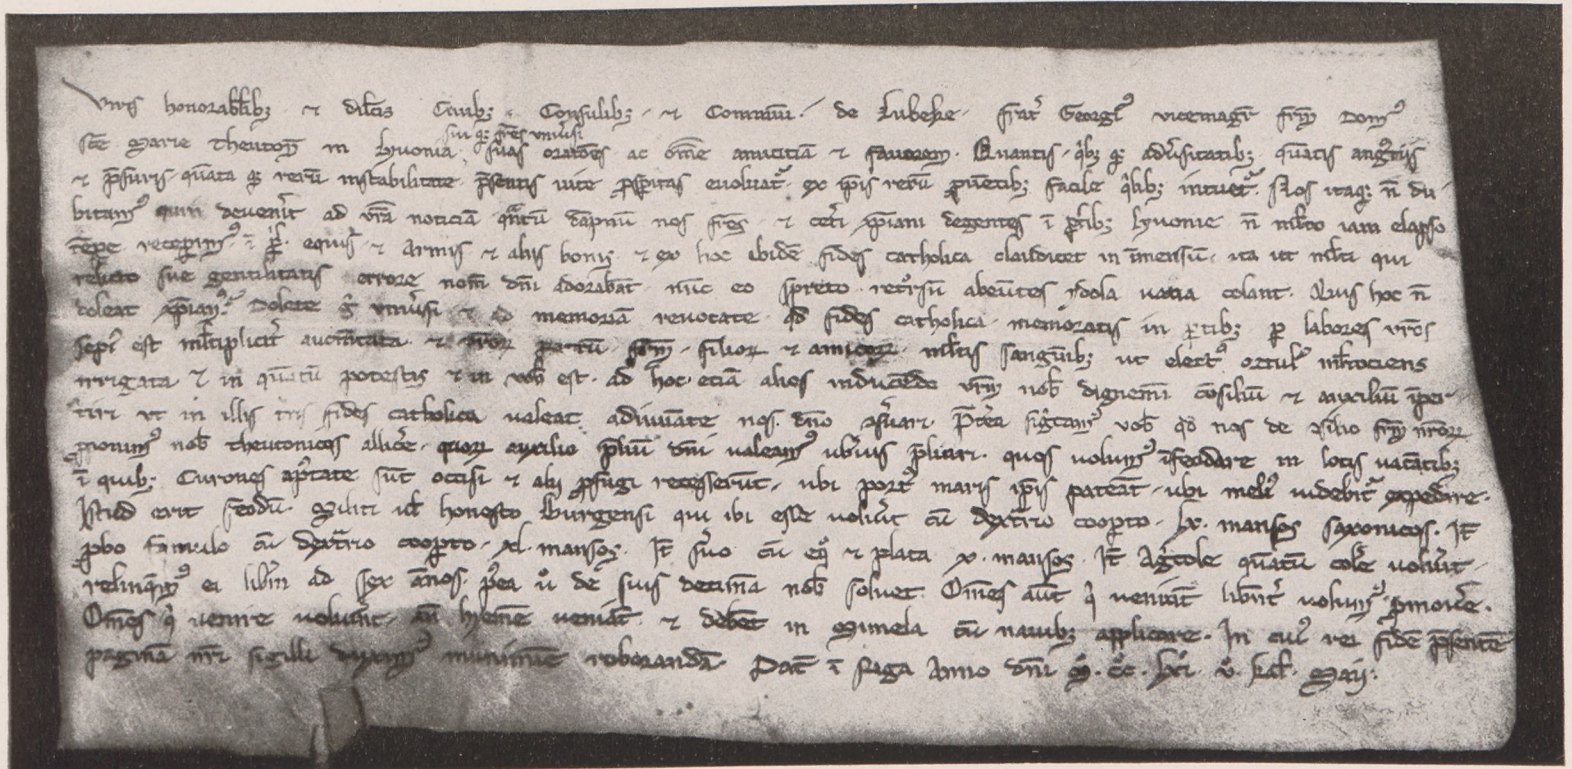 Viris honorabĺibꝫ ⁊ dilc̄is Ciuibꝫ · Consulibꝫ · ⁊ Communi · de Lubeke · frat̄ Georgiꝰ vicemagr̄ fr̄m Domꝰ
sc̄e Marie Theuton̄ in Lyuonia, suiqꝫ fr̄es vniũsi suas orac̄oēs ac om̄e amicitiā ⁊ fauorem · Quantis · qͥbꝫ qꝫ adũsitatibꝫ · quātis angͣstiis
⁊ p̄ssuris · quāta qꝫ rerū instabilitate p̄sentis uite ꝓsꝑitas euoluatͬ · ex ip̄is rerū ꝓuētibꝫ facile qͥlibꝫ intuetͬ. Nos itaqꝫ n̄ du-
bitamꝰ quin deuen̄it ad vr̄ā noticiā qn̄tū dāpnū nos fr̄es · ⁊ cet̄i xp̄iani degentes ī ꝑtibꝫ Lyuonie n̄ ml̄to iam elapso
tēpe recepimꝰ · ī equis · ⁊ Armis ⁊ aliis bonis ⁊ ex hoc ibidē fides catholica claudicet in īmensū · ita ut ml̄ti qui
relicto sue gentilitatis errore nom̄ dn̄i adorabāt · nūc eo spreto · ret̊rsū abeūtes ydola vana colant · Quis hoc n̄
doleat xp̄ianꝰ · Dolete gͦ vniũsi ⁊ ad memoriā reuocate · qd̄ fides catholica memoratis in ꝑtibꝫ ꝑ labores vr̄os
sepiꝰ est ml̄tiplicit̄ augmētata · ⁊ vr̄oꝝ patrū · fr̄m · filioꝝ ⁊ amicoꝝ ml̄tis sanguībꝫ ut electꝰ ortulꝰ ml̄tociens
irrigata ⁊ in quātū potestis ⁊ in vob̄ est · ad hoc etiā alios inducēdo vr̄m nob̄ dignemī cōsiliū ⁊ auxiliū īper-
tiri ut in illis fides catholica ualeat adiuuāte nos dn̄o ꝯs̄uari · P̄t̄ea sigͥficamꝰ vob̄ qd̄ nos de ꝯsilio fr̄m nr̄oꝝ
nob̄ theutonicos allic̄e · quoꝝ auxilio p̄liū dn̄i ualeamꝰ ub̄ius p̄liari · quos uolumꝰ īfeodare in locis uacātibꝫ
ī quibꝫ Curones apͦstate sūt occisi ⁊ alii ꝓfugi recesserunt · ubi portꝰ maris ip̄is pateāt · ubi meliꝰ uidebitͬ expedire ·
Istud erit feodū · Militi ul̄ honesto Burgensi qui ibi esse uolũit cū dextrario cooꝑto · lx · mansos saxonicos · It̄
ꝓbo famulo cū dextrario cooꝑto · xl · mansos · It̄ s̄uo cū eqͦ ⁊ plata x · mansos · It̄ Agͥcole quātū col̄e uolũit
relinqͥmꝰ ei lib̄m ad sex ānos · p̄ea ũ de suis decimā nob̄ soluet · Om̄es aūt qͥ ueniūt libēt̄ volumꝰ ꝓmou̇e ·
Om̄es qͥ uenire uolũint · an̄ hyemē ueniāt · ⁊ debēt in Mimela cū nauibꝫ applicare · In cuiꝰ rei fidē p̄sentē
paginā nr̄i sigilli duximꝰ munimine roborandā · Dat̄ ī Riga Anno dn̄i M̊ · CC̊ · lxi̊ · V̊ · kal̄ · Maij ·